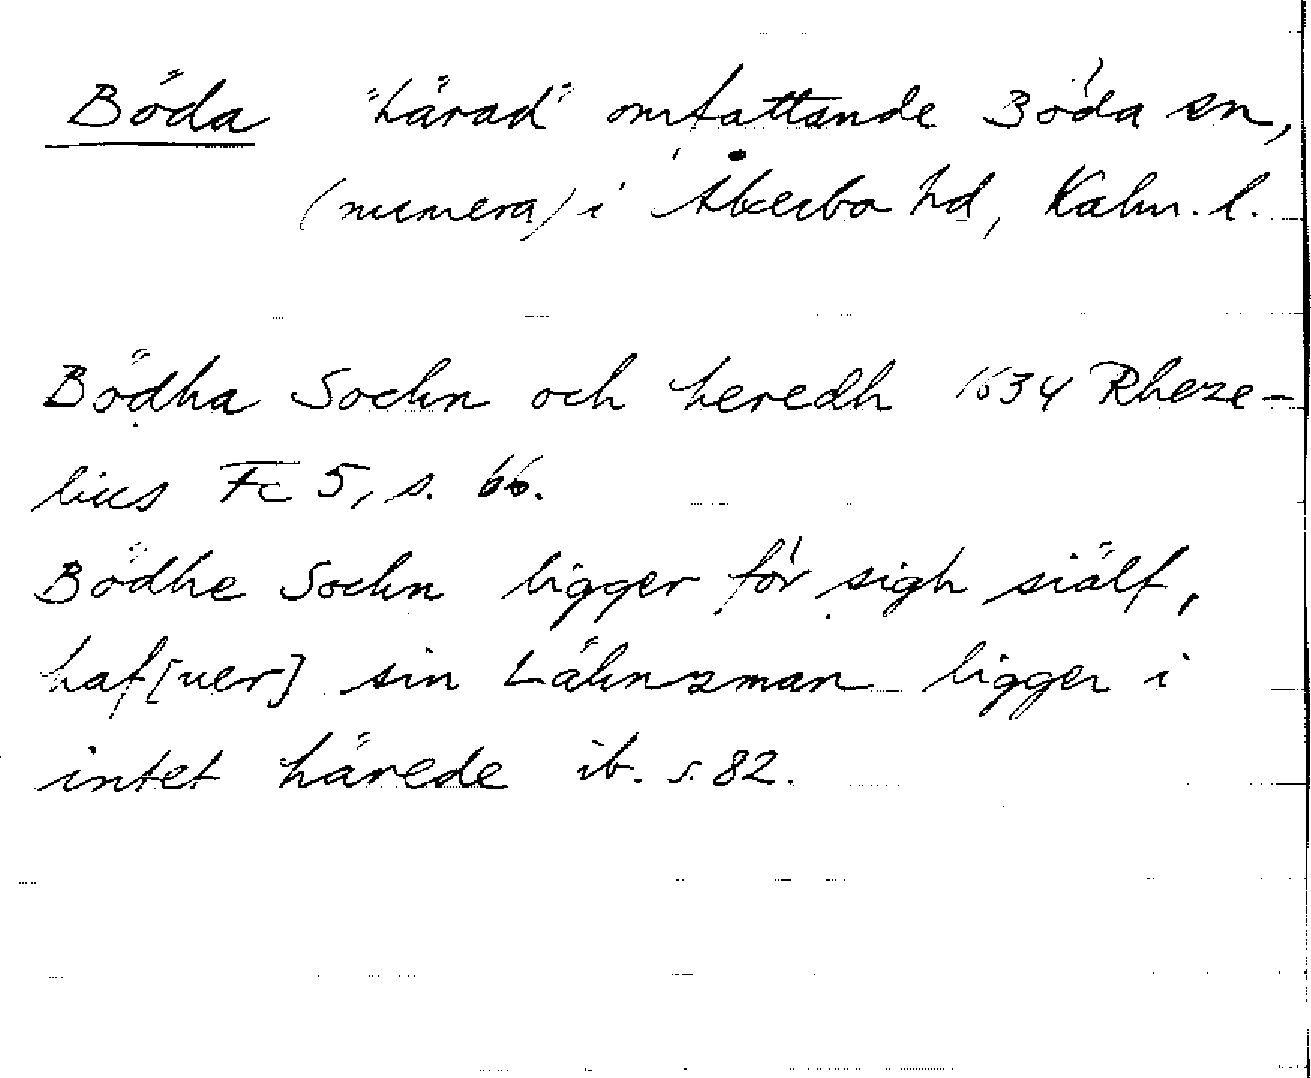 Böda "härad" omfattande Böda sn,
(numera) i Åkerbo hd, Kalm. l.
Bödha Sochn och heredh 1634 Rheze-
lius Fc 5, s. 66.
Bödhe Sochn ligger för sigh siälf,
haf[uer] sin Lähnsman ligger i
intet härede ib. s. 82.